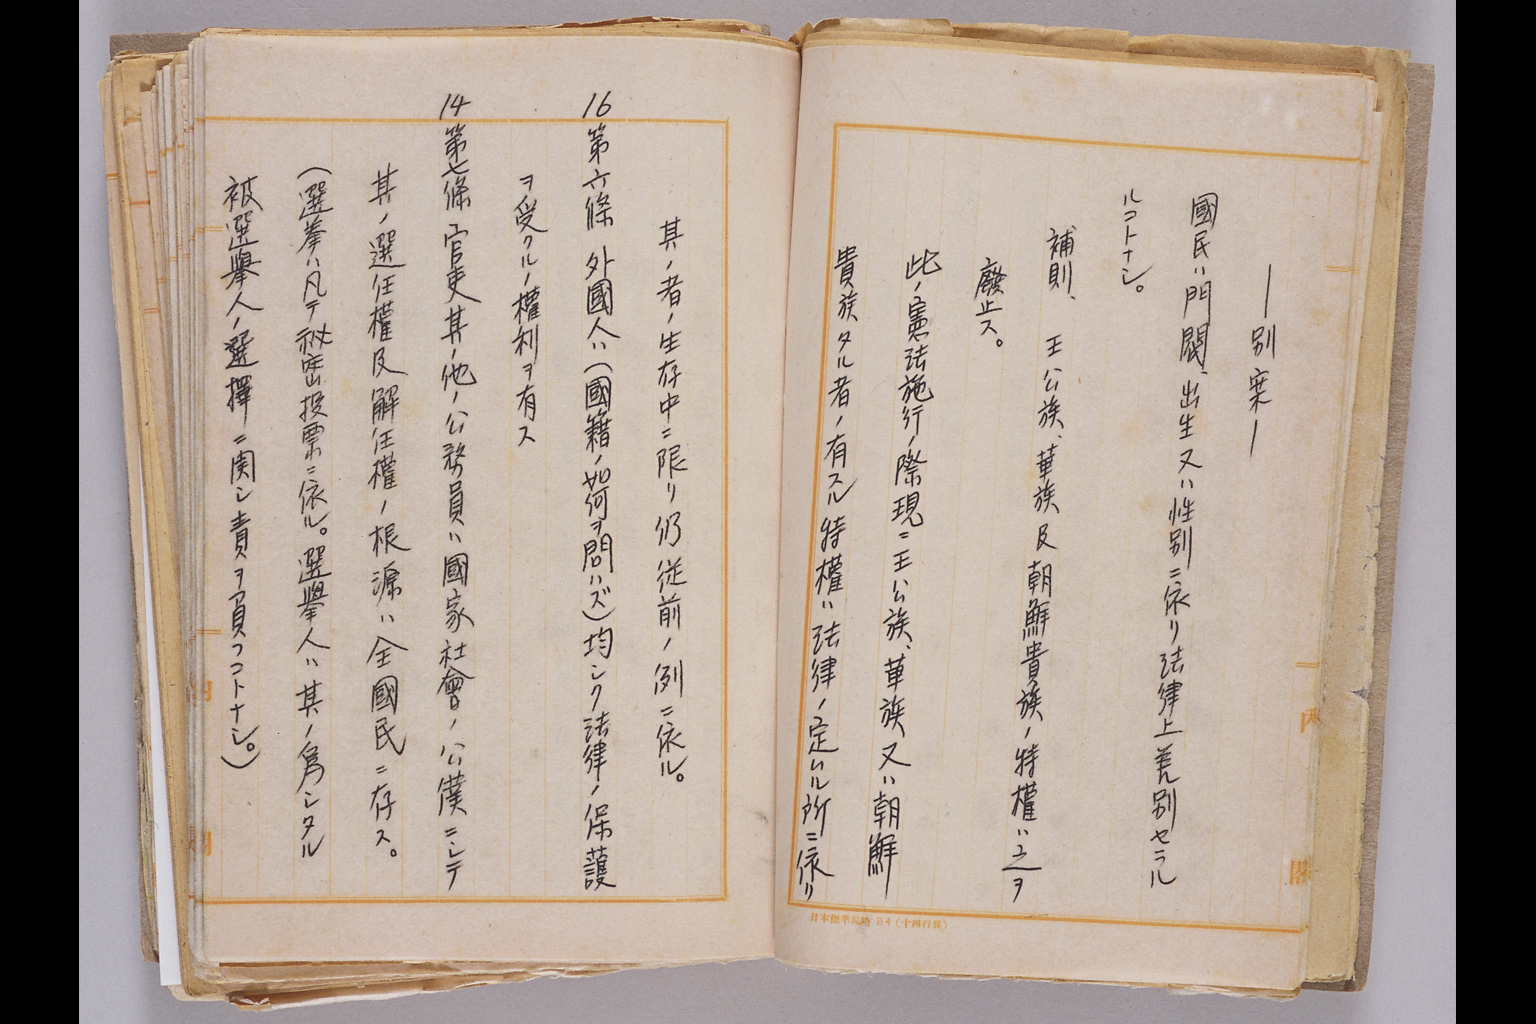 ―別案―
國民ハ門閥、出生又ハ性別ニ依リ法律上差別セラル
ルコトナシ。
補則、王公族、華族及朝鮮貴族ノ特權ハ之ヲ
廢止ス。
此ノ憲法施行ノ際現ニ王公族、華族又ハ朝鮮
貴族タル者ノ有スル特權ハ法律ノ定ムル所ニ依リ
日本標準規格B4(十四行罫)
其ノ者ノ生存中ニ限リ仍従前ノ例ニ依ル。
16 第六條 外國人ハ(國籍ノ如何ヲ問ハズ)均シク法律ノ保護
ヲ受クルノ權利ヲ有ス
14 第七條 官吏其ノ他ノ公務員ハ國家社會ノ公僕ニシテ
其ノ選任權及解任權ノ根源ハ全國民ニ存ス。
(選挙ハ凡テ祕密投票ニ依ル。選擧人ハ其ノ為シタル
被選擧人ノ選擇ニ関シ責ヲ負フコトナシ。)